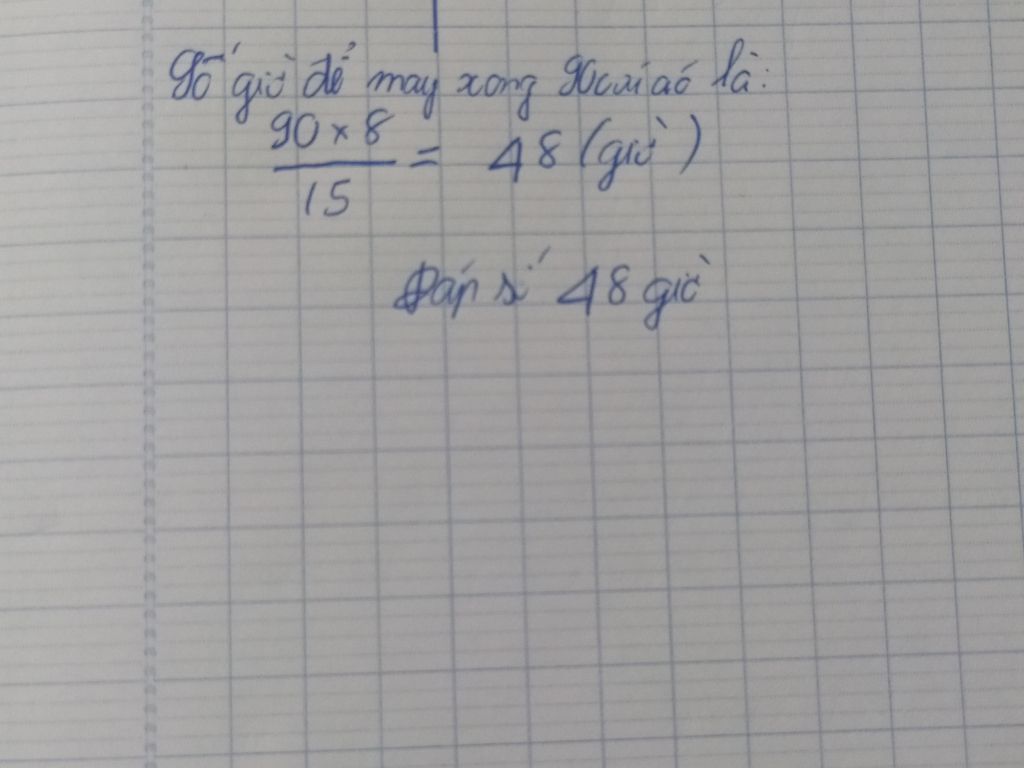 Số giờ để may xong 90 cái áo là:
90 × 8
15
= 48 (giờ)
Đáp số 48 giờ